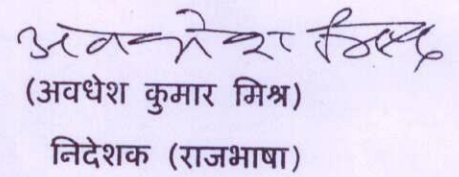 अवधेश मिश्र
(अवधेश कुमार मिश्र)
निदेशक (राजभाषा)